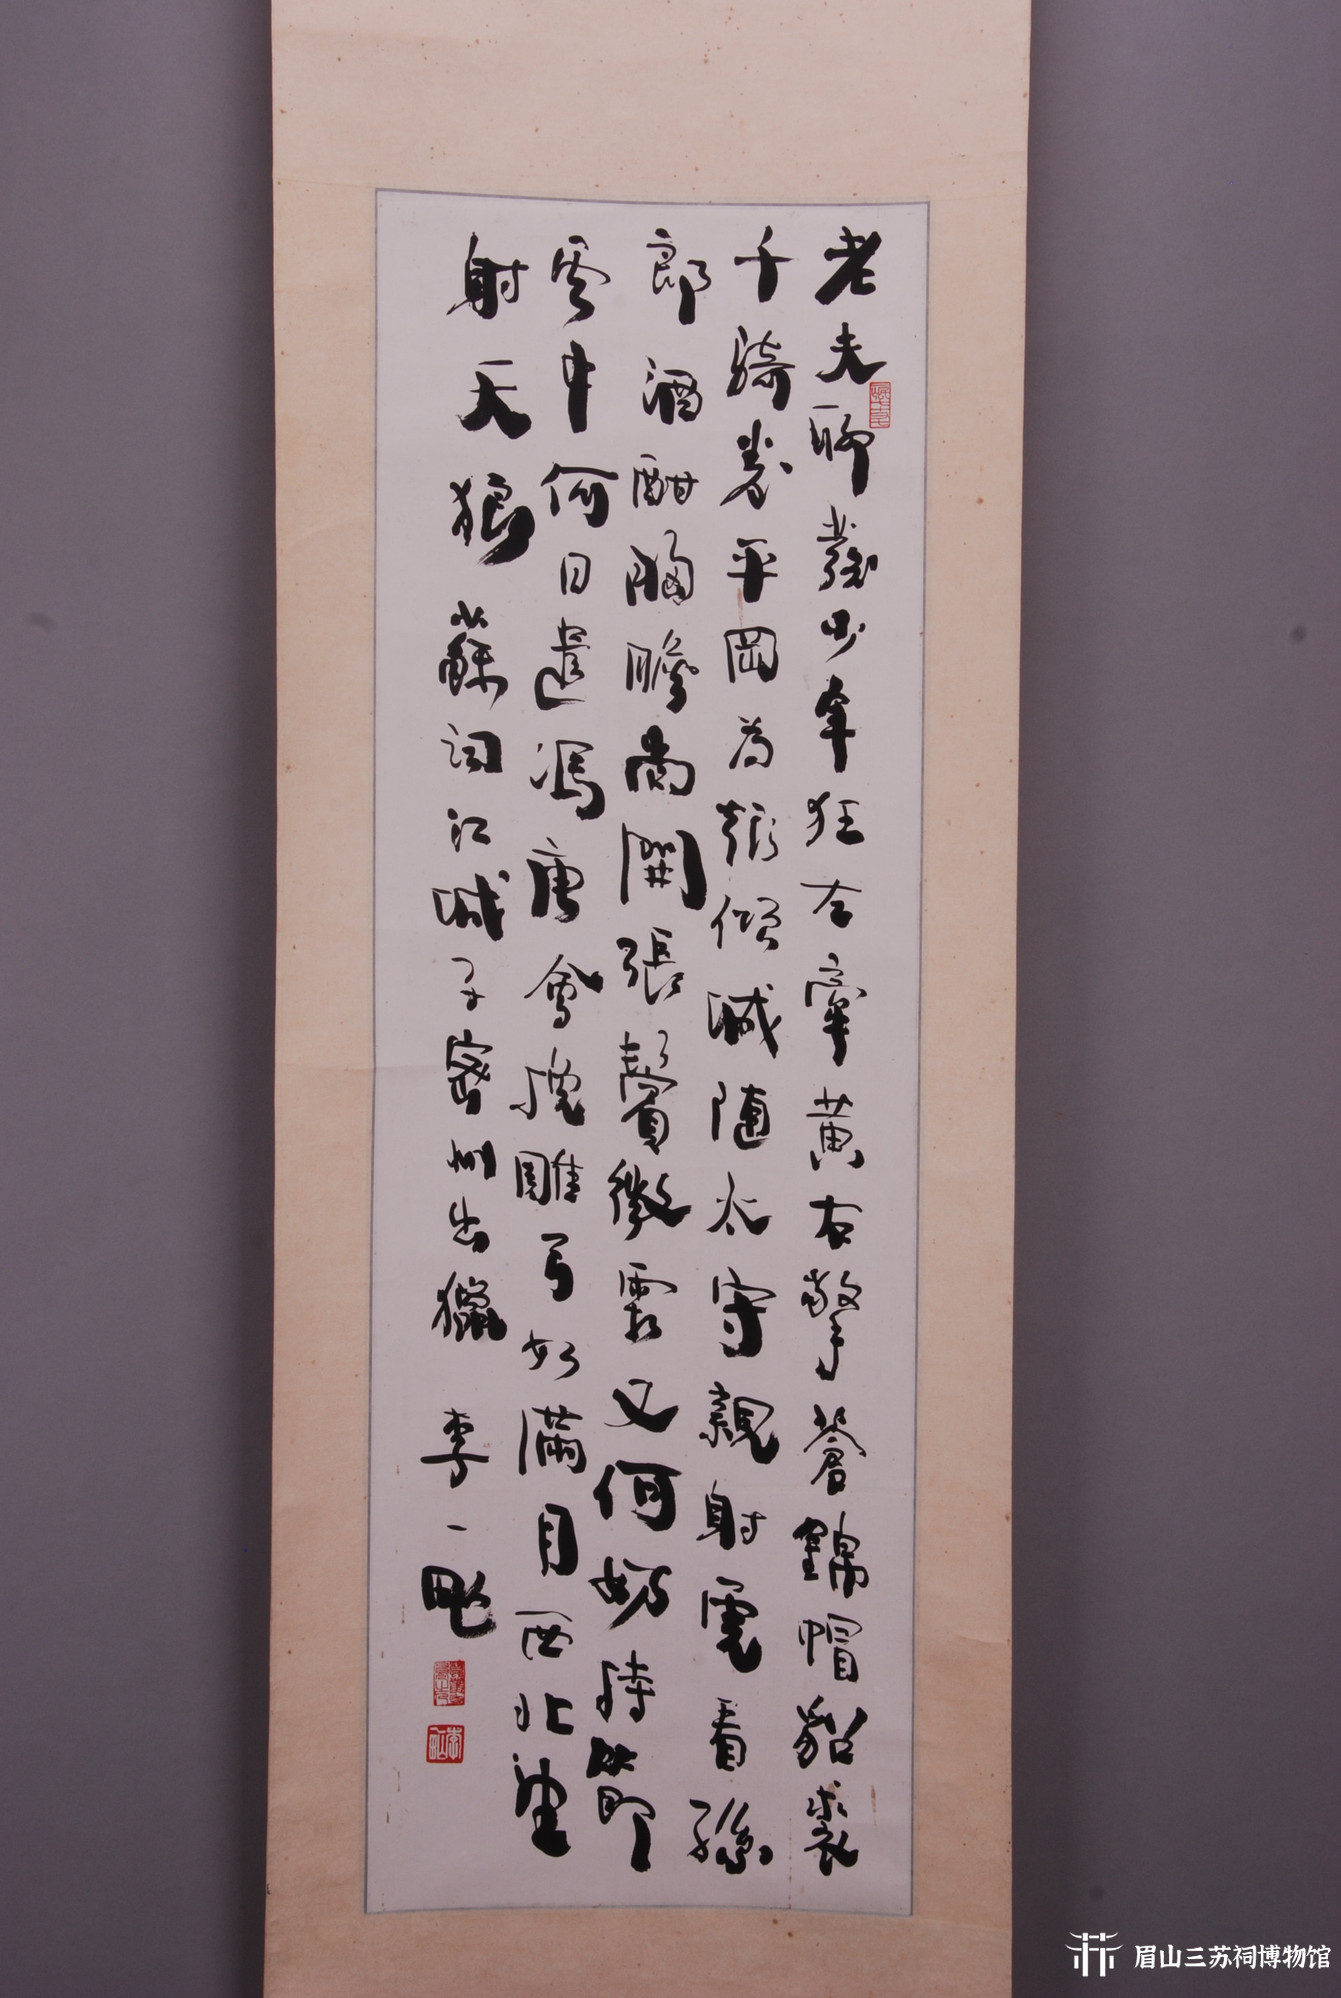 老夫聊發少年狂左牽黃右擎蒼錦帽貂裘
千騎卷平岡為報傾城隨太守親射虎看孫
郎酒酣胸膽尚開張鬢微霜又何妨持節
雲中何日遣馮唐會挽雕弓如滿月西北望
射天狼 蘇詞江城子密州出獵 李一甿
眉山三苏祠博物馆